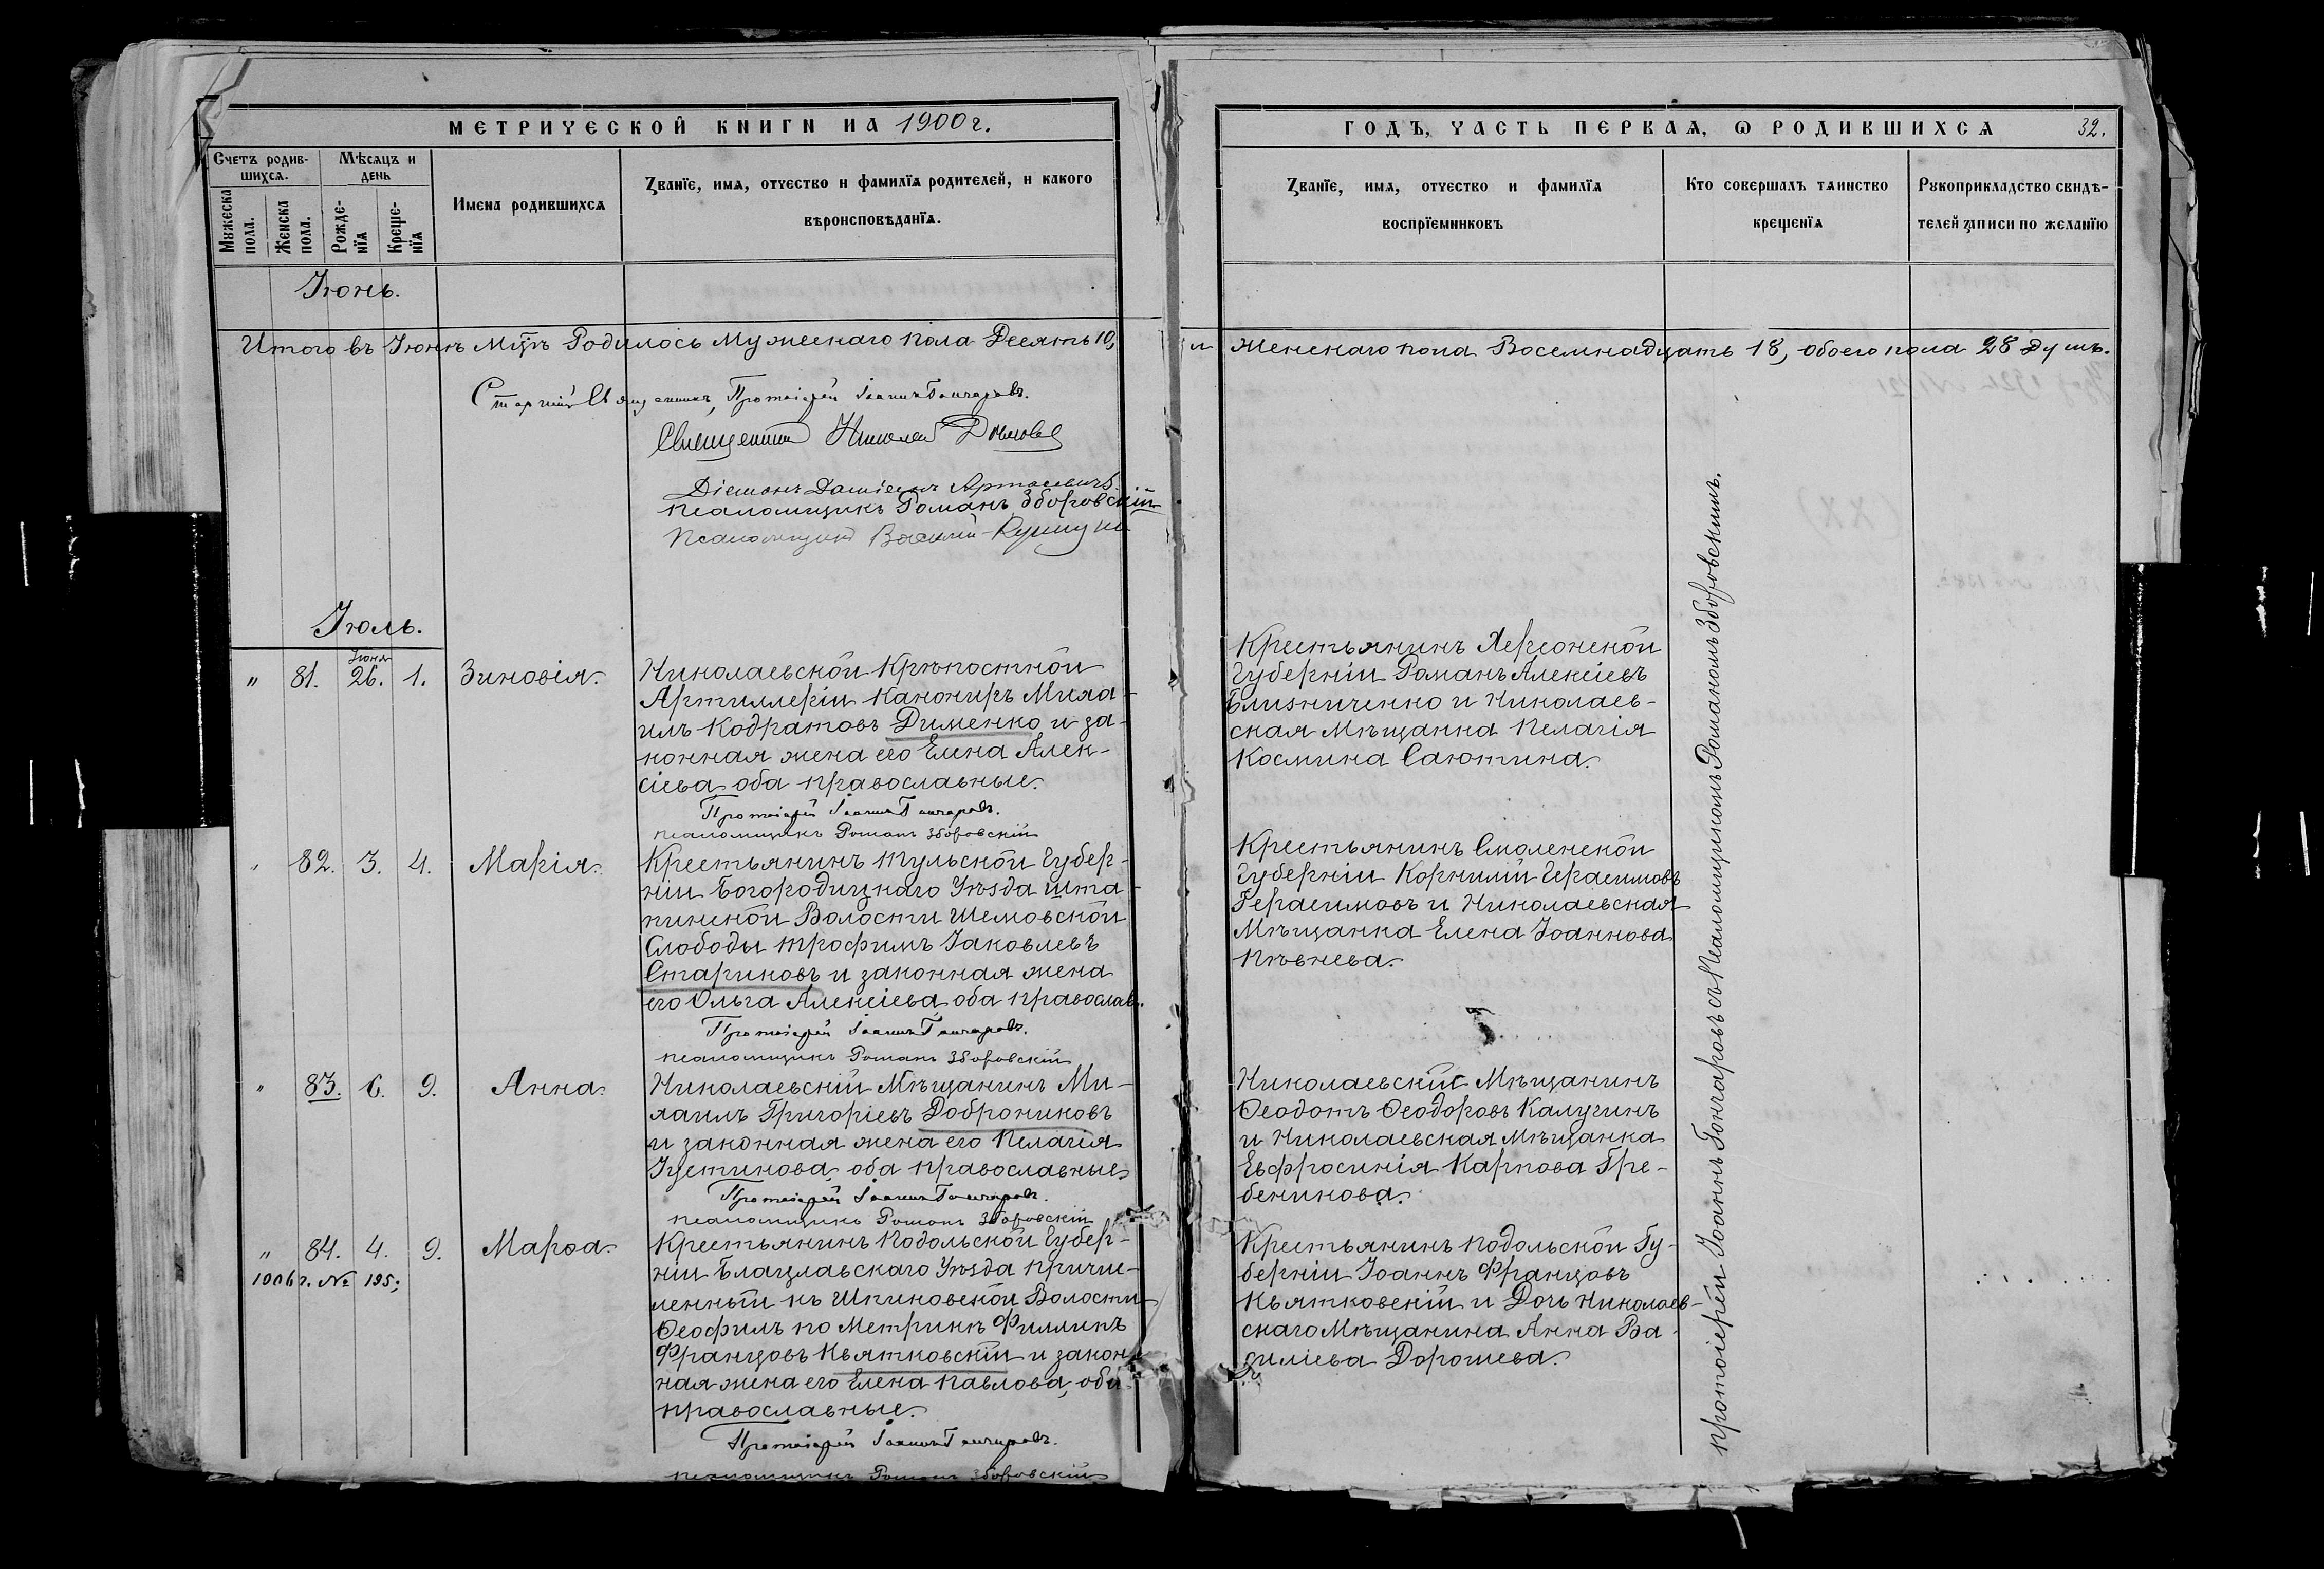 МЕТРИЧЕСКОЙ КНИГИ НА 1900 г.
Счетъ родив-
шихся.
Мѣсяцъ и
день
Мужеска
пола.
Женска
пола.
Рожде-
нїя
Креще-
нїя
Имена родившихся
Званїе, имя, отчество и фамилїя родителей, и какого
вѣроисповѣданїя.
Іюнь.
Итого въ Іюнѣ Мцѣ Родилось Мужескаго пола Десять 10,
Старшій Священникъ, Протоіерей Іоаннъ Гончаровъ.
Священникъ Николай
Діаконъ Даміанъ Артасевичъ
Псаломщикъ Романъ Зборовскій
Псаломщикъ Василій
Іюль.
" 81. Іюня 26. 1. Зиновія.
Николаевской Крѣпостной
Артиллеріи Канониръ Миха-
илъ Кодратовъ Дименко и за-
конная жена его Елена Алек-
сіева, оба православные.
Протоіерей Іоаннъ Гончаровъ.
Псаломщикъ Романъ Зборовскій
" 82. 3. 4. Марія.
Крестьянинъ Тульской Губер-
ніи Богородицкаго Уѣзда Шта-
тинской Волости Шемовской
Слободы Трофимъ Іаковлевъ
Стариковъ и законная жена
его Ольга Алексіева, оба православ.
Протоіерей Іоаннъ Гончаровъ.
Псаломщикъ Романъ Зборовскій
" 83. 6. 9. Анна.
Николаевскій Мѣщанинъ Ми-
хаилъ Григоріевъ Доброниковъ
и законная жена его Пелагія
Іустинова, оба православные
Протоіерей Іоаннъ Гончаровъ.
Псаломщикъ Романъ Зборовскій
" 84. 4. 9. Марѳа.
1906 г. № 195;
Крестьянинъ Подольской Губер-
ніи Брацлавскаго Уѣзда причис-
ленный къ Шпиковской Волости
Ѳеофилъ по Метрикѣ Филлипъ
Францовъ Квятковскій и закон-
ная жена его Елена Павлова, оба
православные.
Протоіерей Іоаннъ Гончаровъ.
Псаломщикъ Романъ Зборовскій
ГОДЪ, ЧАСТЬ ПЕРВАЯ, Ѡ РОДИВШИХСЯ 32.
Званїе, имя, отчество и фамилїя
воспрїемниковъ
Кто совершалъ таинство
крещенїя
Рукоприкладство свидѣ-
телей записи по желанїю
и Женскаго пола Восемнадцать 18, обоего пола 28 душъ.
Крестьянинъ Херсонской
Губерніи Романъ Алексіевъ
Близниченко и Николаев-
ская Мѣщанка Пелагія
Космина Саютина.
Крестьянинъ Смоленской
Губерніи Корнилій Герасимовъ
Герасимовъ и Николаевская
Мѣщанка Елена Іоаннова
Пѣвнева.
Николаевскій Мѣщанинъ
Ѳеодотъ Ѳеодоровъ Калугинъ
и Николаевская Мѣщанка
Евфросинія Карпова Гре-
беникова.
Крестьянинъ Подольской Гу-
берніи Іоаннъ Францовъ
Квятковскій и Дочь Николаев-
скаго Мѣщанина Анна Ва-
силіева Дорошева.
Протоіерей Іоаннъ Гончаровъ съ Псаломщикомъ Романомъ Зборовскимъ.